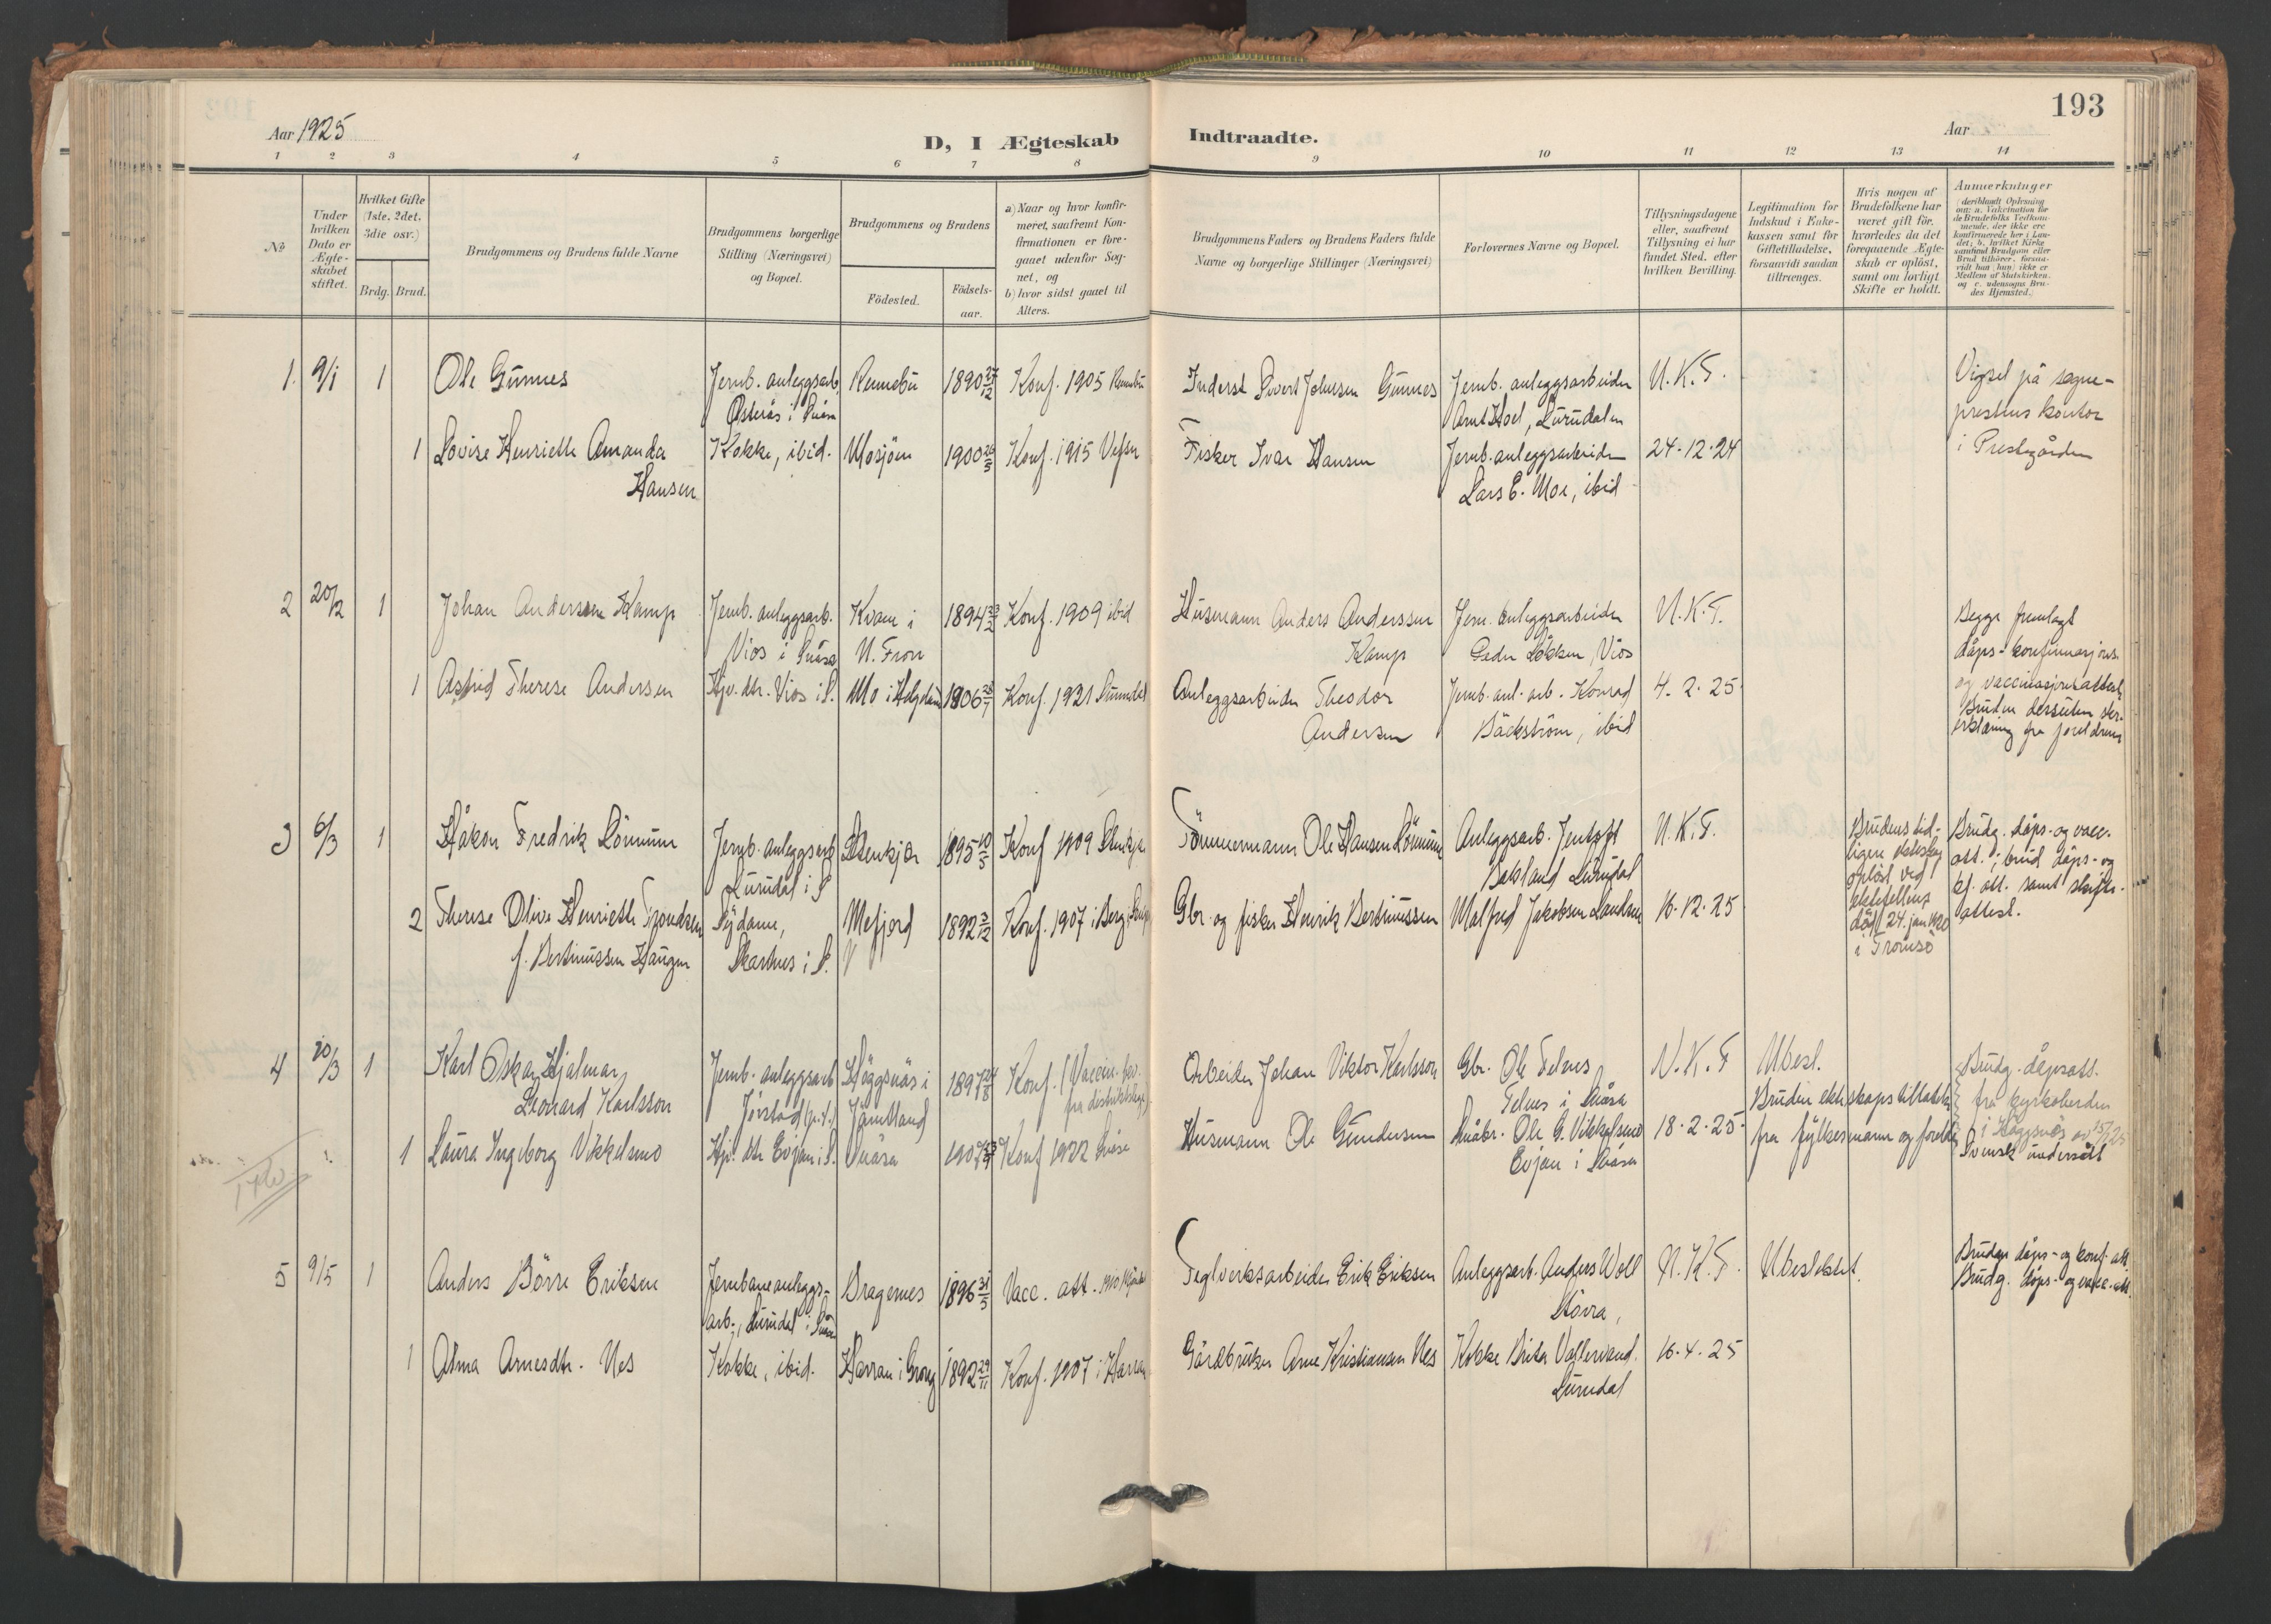 193
Aar 1925
D, I Ægteskab Indtraadte.
Aar
1 2 3 4 5 6 7 8 9 10 11 12 13 14
No
Under hvilken Dato er Ægteskabet stiftet.
Hvilket Gifte (1ste, 2det, 3die osv.)
Brdg. Brud.
Brudgommens og Brudens fulde Navne
Brudgommens borgerlige Stilling (Næringsvei) og Bopæl.
Brudgommens og Brudens
Födested. Födsels-aar.
a) Naar og hvor konfirmeret, saafremt Konfirmationen er foregaaet udenfor Sognet, og
b) hvor sidst gaaet til Alters.
Brudgommens Faders og Brudens Faders fulde Navne og borgerlige Stillinger (Næringsvei)
Forlovernes Navne og Bopæl.
Tillysningsdagene eller, saafremt Tillysning ei har fundet Sted, efter hvilken Bevilling.
Legitimation for Indskud i Enkekassen samt for Giftetilladelse, forsaavidt saadan tiltrænges.
Hvis nogen af Brudefolkene har været gift för, hvorledes da det foregaaende Ægteskab er oplöst, samt om lovligt Skifte er holdt.
Anmerkninger (deriblandt Oplysning om: a. Vakcination for de Brudefolks Vedkommende, der ikke ere konfirmerede her i Landet; b. hvilket Kirkesamfund Brudgom eller Brud tilhörer, forsaavidt han (hun) ikke er Medlem af Statskirken, og c. udensogns Brudes Hjemsted.)
1. 9/1 1 Ole Gunnes
Jernb. anleggsarb. Østerås i Snåsa
Rennebu 1890 27/12 Konf. 1905 Rennebu
Inderst Sivert Johnsen Gunnes
Jernb. anleggsarbeider Arnt Hoel, Lurudalen
N.K.T.
Vigsel på sogneprestens kontor i Prestegården
1 Lovise Henriette Amanda Hansen
Kokke, ibid. Mosjøen 1900 26/3 Konf. 1915 Vefsn
Fisker Ivar Hansen
Jernb. anleggsarbeider Lars E. Moe, ibid
24.12.24
2 20/2 1 Johan Anderssen Kamp
Jernb. anleggsarb. Vios i Snåsa
Kvam i N. Fron 1894 23/2 Konf. 1909 ibid
Husmann Anders Anderssen Kamp
Jern. anleggsarbeider Peder Løkken, Vios
N.K.T.
Begge fremlagt dåps- konfirmasjons- og vaccinasjonsattest, Bruden dessuten erklæring fra foreldrene
1 Astrid Therese Andersen
Hjv. dtr. Vios i S. Mo i Helgeland 1906 28/7 Konf. 1921
Anleggsarbeider Theodor Andersen
Jernb. anl. arb. Konrad Bäckström, ibid
4.2.25
3 6/3 1 Håkon Fredrik Lömmun
Jernb. anleggsarb Lurudal i S
Stenkjær 1895 10/5 Konf 1909 Stenkjær
Tömmermann Ole Hansen Lömmun
Anleggsarb. Jentoft Bakland Lurudal
N.K.T.
Brudens tidligere ekteskap oplöst ved ektefellens död 24. jan 1920 i Tromsö
Brudg. dåps- og vacc. att.; brud dåps- og kf. att. samt skifteattest.
2 Therese Olive Henriette Trondsen f. Bertinussen Haugen
Sydame, Starnes i S.
Mefjord 1892 3/12 Konf. 1907 i Berg
Gbr og fisker Henrik Bertinussen
Malfred Jakobsen
16.12.25
4 20/3 1 Karl Oskar Hjalmar Leonard Karlsson
Jernb. anleggsarb Jørstad (p.t.)
Häggsnäs i Jämtland 1897 24/8 Konf. (Vaccin. bev. fra distriktslæge)
Arbeider Johan Viktor Karlsson
Gbr. Ole Felnes Felnes i Snåsa
N.K.T Ubesl.
Bruden ekteskapstillatelse fra fylkesmann og foreldre
Brudg. dåpsatt. fra kyrkoherden i Häggsnäs av 15/1 25 Svensk undersått
1 Laura Ingeborg Vikkelsmo
Hjv. dtr Evjen i S. Snåsa 1907 Konf 1922 Snåsa
Husmann Ole Gundersen
Småbr. Ole G. Vikkelsmo Evjen i Snåsa
18.2.25
5 9/5 1 Anders Börre Eriksen
Jernbaneanleggsarb., Lurudal i Snåsa
Bragernes 1896 31/5 Vacc. att. 1910
Teglverksarbeider Erik Eriksen
Anleggsarb. Anders Woll Støvra,
N.K.T. Ubeslektet.
Bruden dåps- og konf. att. Brudg. dåps- og vacc. att.
1 Alma Arnesdtr. Nes
Kokke, ibid. Harran i Grong 1892 29/11 Konf. 1907 i Harran
Gårdbruker Arne Kristiansen Nes
Kokke Brita Lurudal
16.4.25